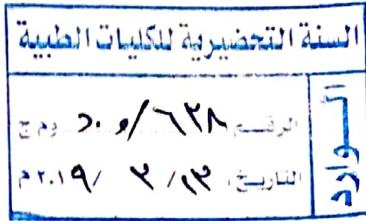 السنة التحضيرية للكليات الطبية
الوارد
الرقم وم ج
التاريخ: ٢٠١٩ م